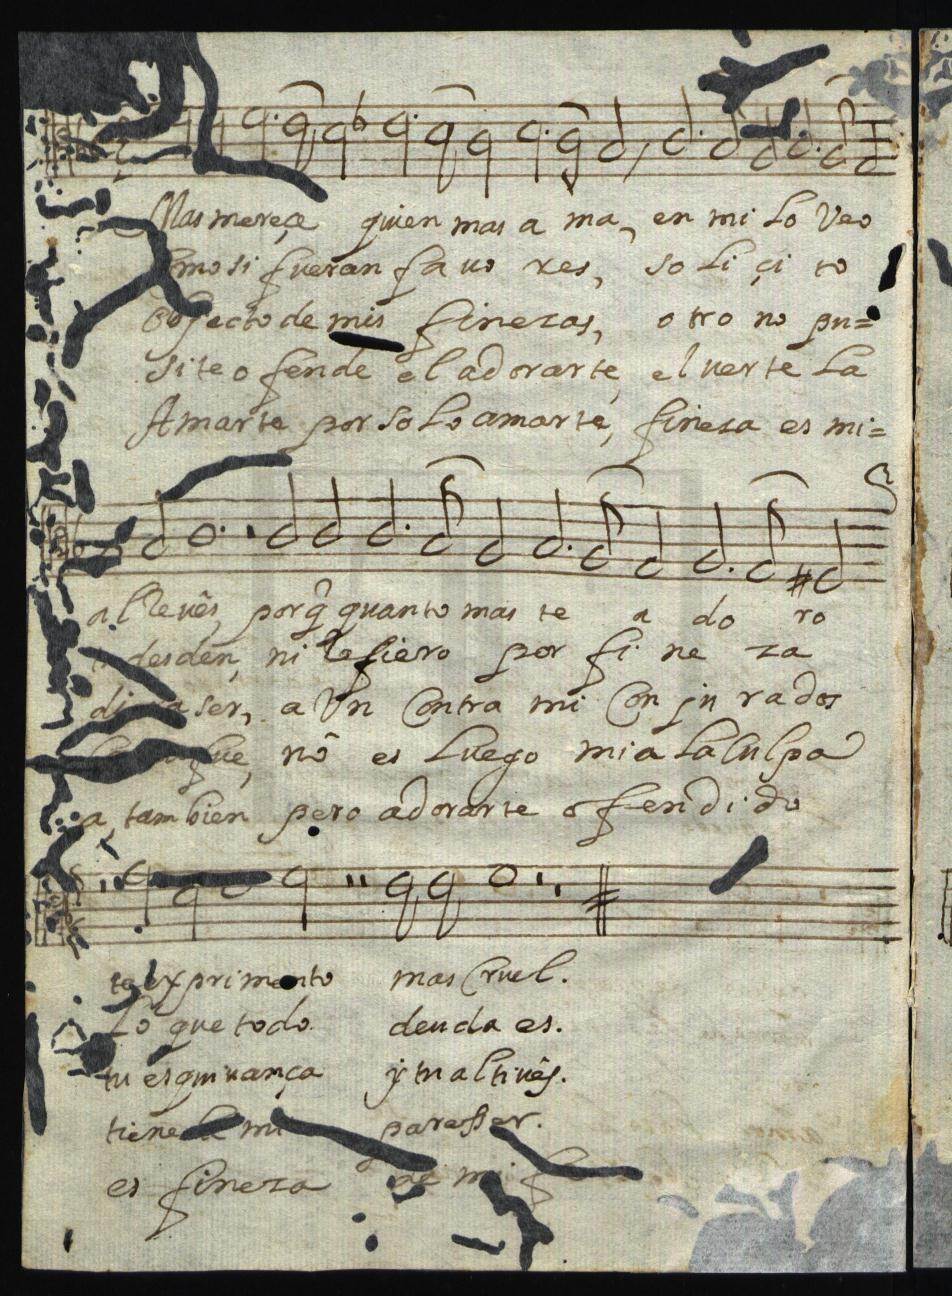 Mas mereçe quien mas a ma, en mi Lo Veo
mo si fueran fa uo res, so li çi to
obJecto de mis finezas, otro no pu=
si te o fende el adorarte, el uerte La
Amarte por So Lo amarte, fineza es mi=
al Reuês, porq̂ quanto mas te a do ro
desden, ni Refiero por fi ne za
di ser, a Vn Contra mi Con ju rados
fue, nô es Luego mia La Culpa
a, tambien pero adorarte ofendido
te exprimento mas Cruel.
Lo que todo deuda es.
tu esquiuança y tu altiuês.
tiene mi paresser.
es fineza de mi